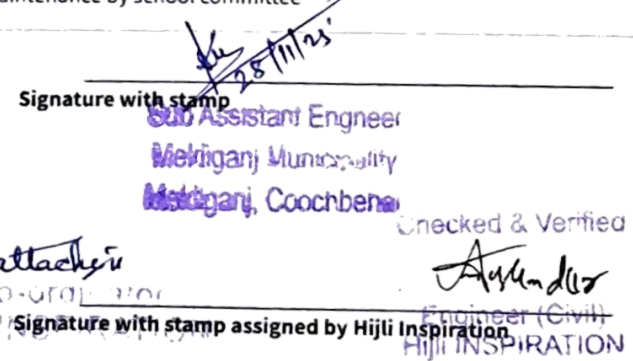 maintenance by school committee
28/11/25
Signature with stamp
Sub Assistant Engneer
Mekliganj Municipality
Mekliganj, Coochbehar
Checked & Verified
Engineer (Civil)
Signature with stamp assigned by Hijli Inspiration
Hijli INSPIRATION